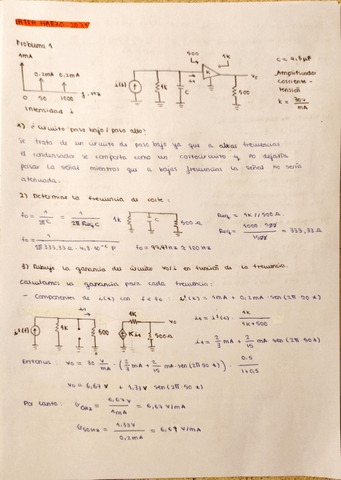 MARZO 2025
Problema 1
1mA
0,2mA 0,2mA
0 50 1000 f, Hz
Intensidad i
i(t) 1K C 500 1K Vo 500
C = 4,8 μF
Amplificador
Corriente -
tensión
K = 30V/mA
1) ¿ Circuito paso bajo / paso alto?
Se trata de un circuito de paso bajo ya que a altas frecuencias
el condensador se comporta como un cortocircuito y no dejaría
pasar la señal mientras que a bajas frecuencias la señal no sería
atenuada.
2) Determine la frecuencia de corte:
fo = 1/2πC = 1/2π Req C
1K C 500 Ω
Req = 1K // 500 Ω
Req = 1000 · 500 / 1500 = 333,33 Ω
fo = 1 / 2π 333,33 Ω · 4,8 · 10⁻⁶ F
fo = 99,47 Hz ≈ 100 Hz
3) Dibuje la ganancia del circuito Vo/i en función de la frecuencia.
Calculamos la ganancia para cada frecuencia:
- Componentes de i(t) con f < fo : i'(t) = 1mA + 0,2mA · sen (2π 50 t)
i'(t) 1K 500 1K Vo 500
is = i'(t) · 1K / 1K + 500
is = 2/3 mA + 2/15 mA sen (2π 50 t)
Entonces: Vo = 30 V/mA · (2/3 mA + 2/15 mA · sen (2π 50 t)) · 0,5 / 1+0,5
Vo = 6,67 V + 1,33 V sen (2π · 50 t)
Por tanto: = 6,67 V / 1mA = 6,67 V/mA
G50Hz = 1,33 V / 0,2mA = 6,67 V/mA